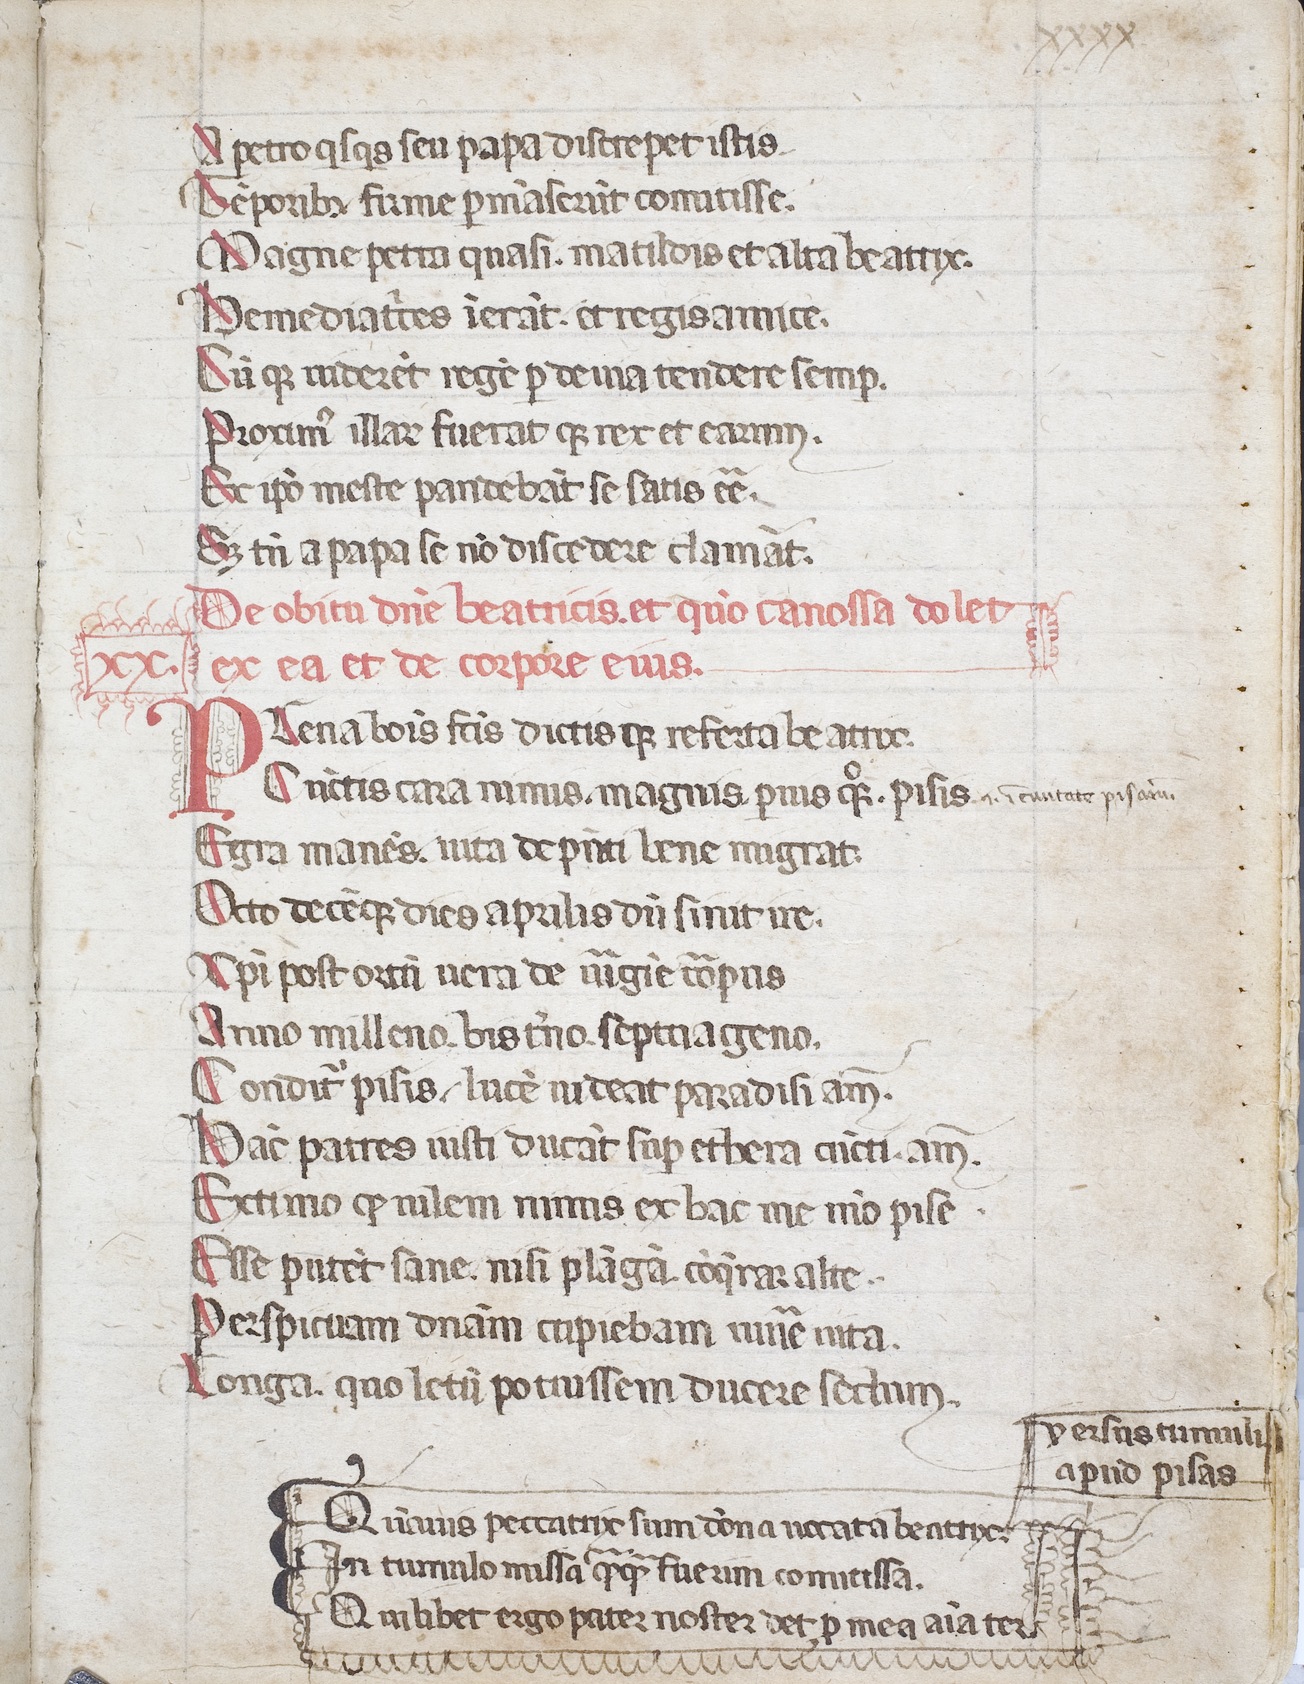 xxxx
A petro qsqs seu papa discrepet istis
Tēporibȝ firme pmāserūt comitisse.
Magne petra quasi. matildis et alta beatrix.
He mediatrces ierāt. et regis amice.
Cū qȝ uiderēt regē p deuia tendere semp.
Proximꝰ illaꝝ fuerat qȝ rex et earum.
Ex ipo meste pandebāt se satis eē.
Sȝ tn̄ a papa se nō discedere clamāt.
De obitu dn̄e beatricis. et quō canossa dolet
xx. ex ea et de corpore eius.
PLena bois fcīs dictisqȝ referta beatrix.
Cūctis cara nimis. magnis. prius qͦꝝ. pisis .i. ī ciuitate pisaꝝ.
Egra manēs. uita de pn̄ti bene migrat.
Octo decēqȝ dies aprilis dū sinit ire.
Xpi post ortū uera de uīgīe cōpus
Anno milleno. bis trno. septuageno.
Conditꝰ pisis. lucē uideat paradisi am̄.
Hāc patres iusti ducāt sup ethera cūcti. am̄.
Extimo qȝ uilem nimis ex hac me mō pise
Esse putēt sane. nisi plāgā. cōqrar alte.
Perspicuam dnām cupiebam iūiē uita.
Longa. quo letū potuissem ducere seclum.
Versus tumuli
apud pisas
Quāuis peccatrix sum dōna uocata beatrix.
In tumulo missa iaceo q̄ fuerim comitissa.
Quilibet ergo pater noster det, p mea aīa ter.